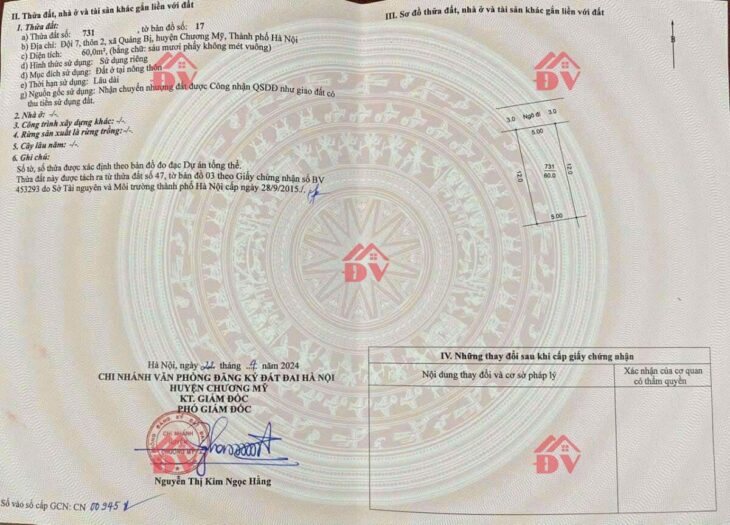 II. Thửa đất, nhà ở và tài sản khác gắn liền với đất
1. Thửa đất:
a) Thửa đất số: 731 , tờ bản đồ số: 17
b) Địa chỉ: Đội 7, thôn 2, xã Quảng Bị, huyện Chương Mỹ, Thành phố Hà Nội
c) Diện tích: 60,0m², (bằng chữ: sáu mươi phẩy không mét vuông)
d) Hình thức sử dụng: Sử dụng riêng
đ) Mục đích sử dụng: Đất ở tại nông thôn
e) Thời hạn sử dụng: Lâu dài
g) Nguồn gốc sử dụng: Nhận chuyển nhượng đất được Công nhận QSDĐ như giao đất có
thu tiền sử dụng đất.
2. Nhà ở: -/-.
3. Công trình xây dựng khác: -/-.
4. Rừng sản xuất là rừng trồng: -/-.
5. Cây lâu năm: -/-.
6. Ghi chú:
Số tờ, số thửa được xác định theo bản đồ đo đạc Dự án tổng thể.
Thửa đất này được tách ra từ thửa đất số 47, tờ bản đồ 03 theo Giấy chứng nhận số BV
453293 do Sở Tài nguyên và Môi trường thành phố Hà Nội cấp ngày 28/9/2015./.
Hà Nội, ngày 22 tháng 9 năm 2024
CHI NHÁNH VĂN PHÒNG ĐĂNG KÝ ĐẤT ĐAI HÀ NỘI
HUYỆN CHƯƠNG MỸ
KT. GIÁM ĐỐC
PHÓ GIÁM ĐỐC
CHI NHÁNH
HUYỆN
CHƯƠNG MỸ
Nguyễn Thị Kim Ngọc Hằng
Số vào sổ cấp GCN: CN 00945
III. Sơ đồ thửa đất, nhà ở và tài sản khác gắn liền với đất
B
3.0 Ngõ đi 3.0
5.00
12.0
731
60.0
12.0
5.00
IV. Những thay đổi sau khi cấp giấy chứng nhận
Nội dung thay đổi và cơ sở pháp lý
Xác nhận của cơ quan
có thẩm quyền
ĐV
ĐV
ĐV
ĐV
ĐV